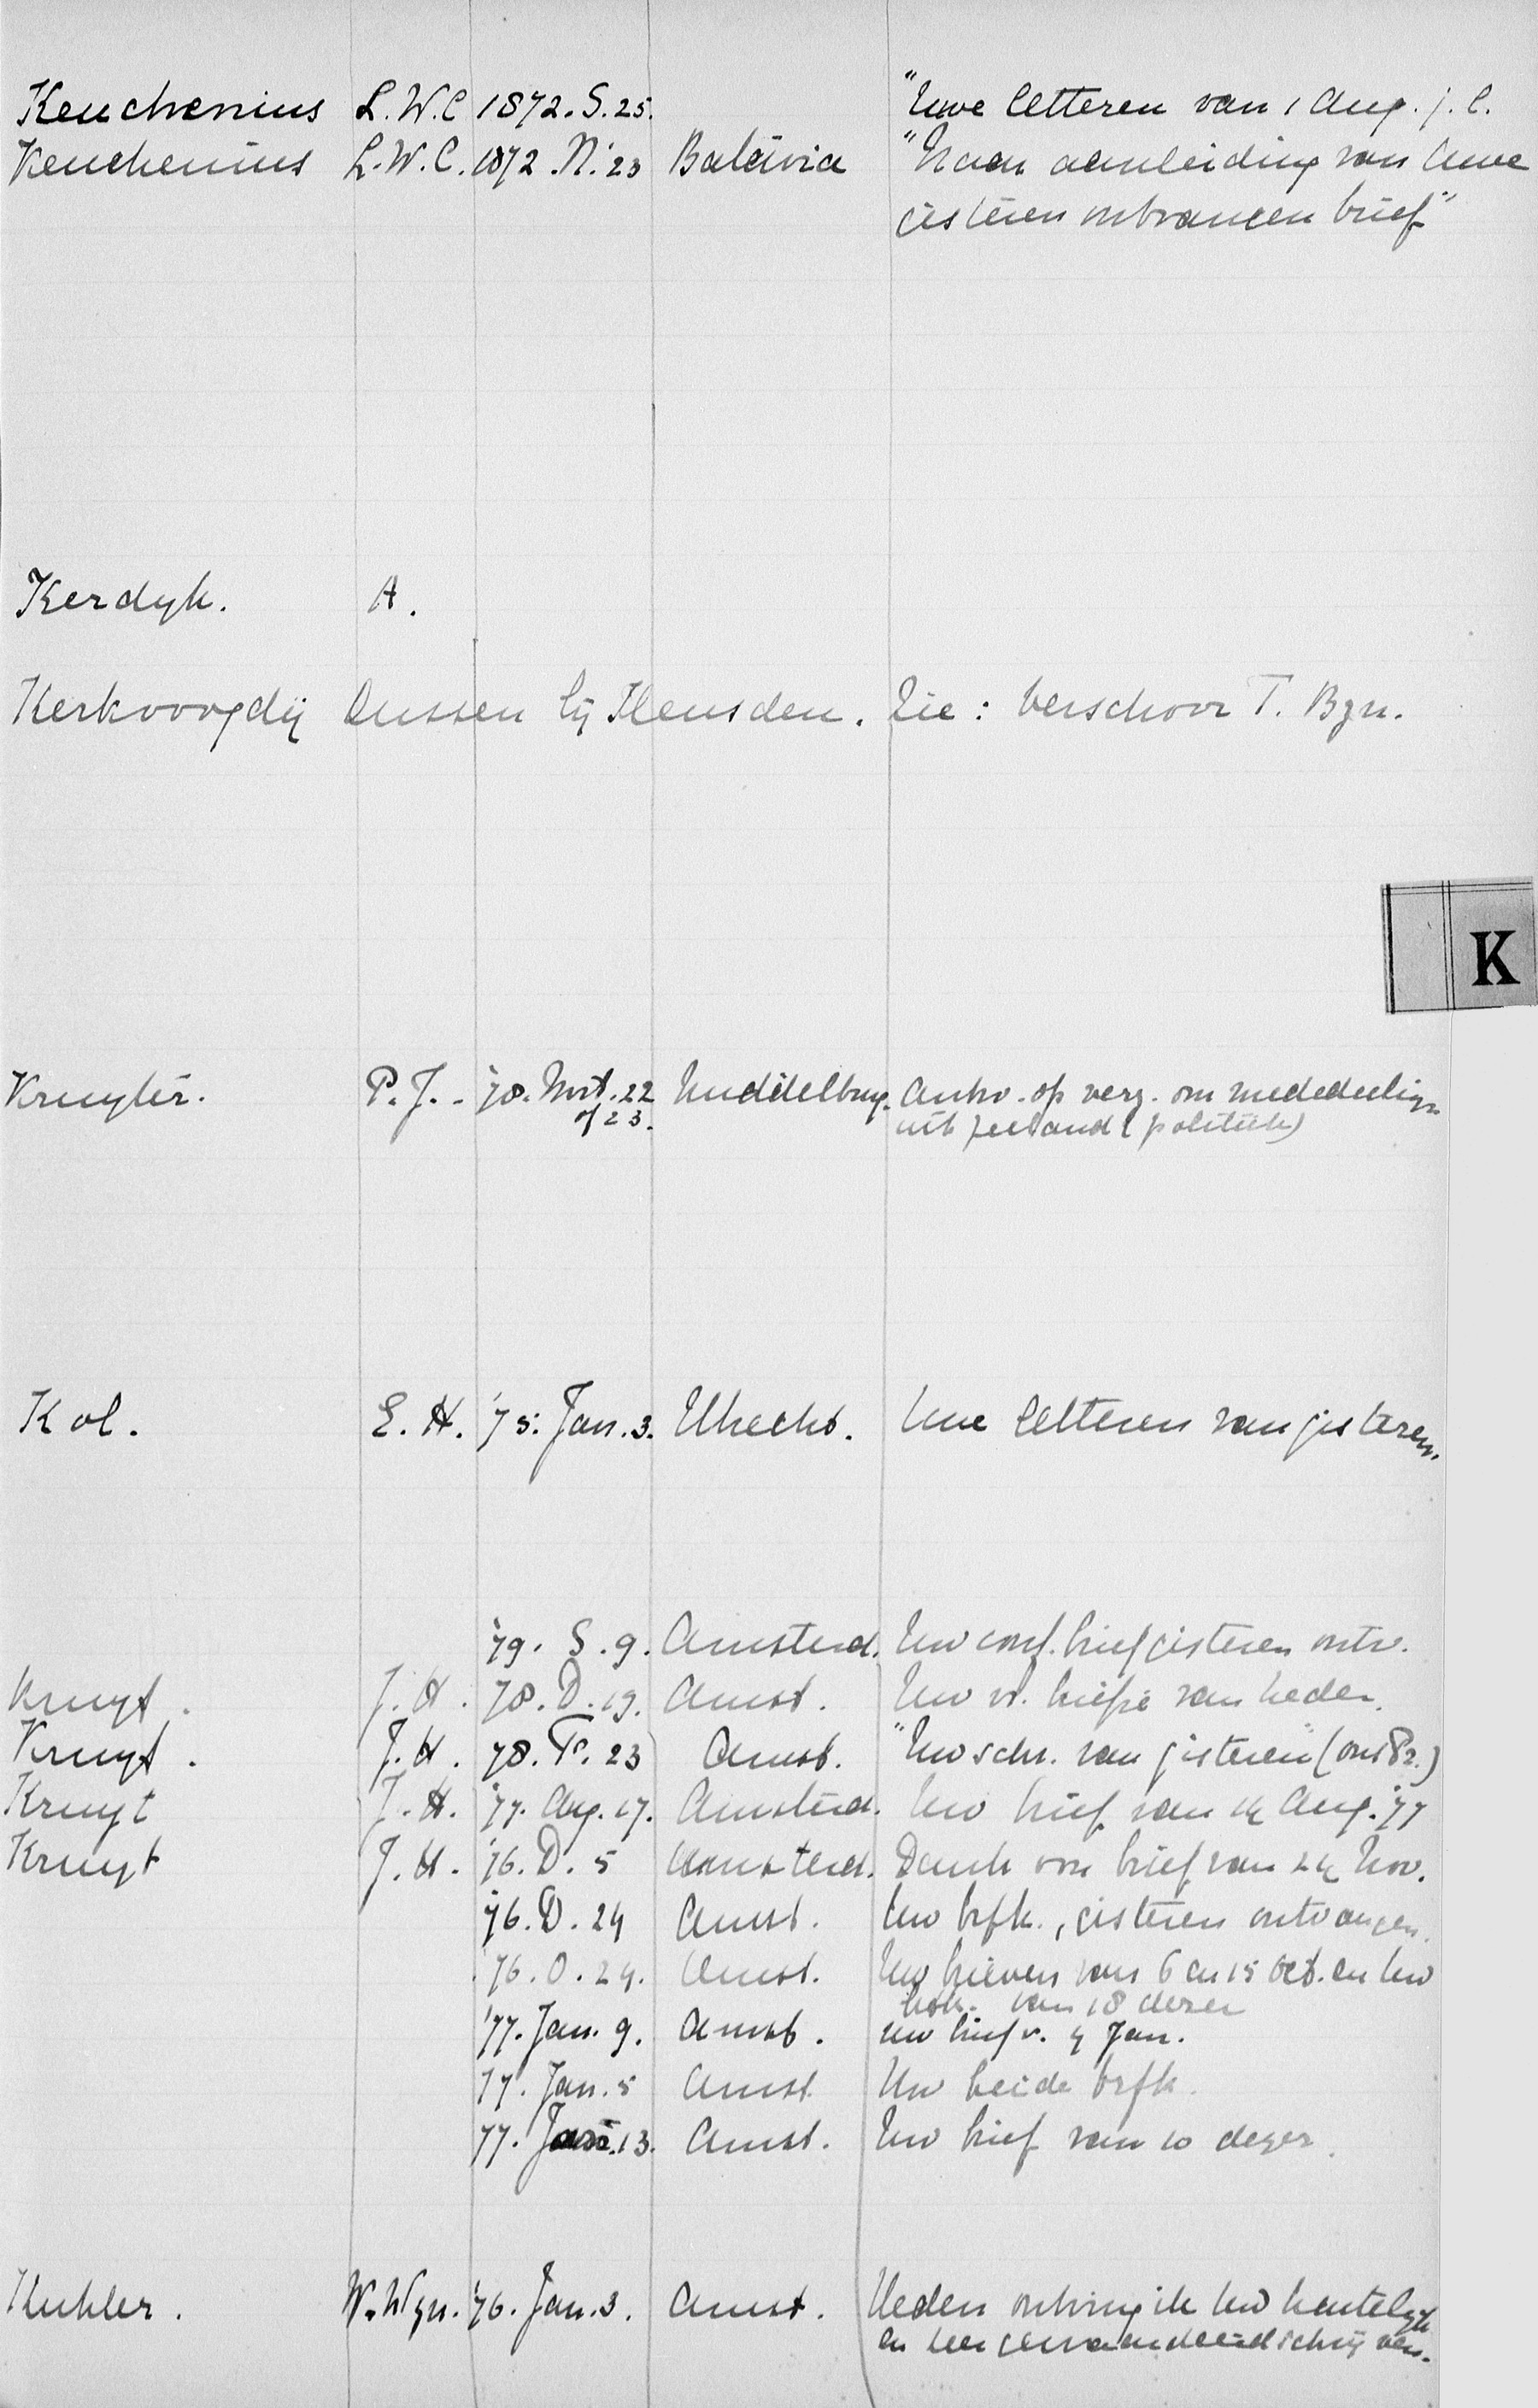 Keuchenius L.W.C 1872. S. 25. "Uwe letteren van 1 Aug. j.l.
Keuchenius L.W.C. 1872. N. 23 Batavia "Naar aanleiding van Uwe
gisteren ontvangen brief"
Kerdyk. A.
Kerkvoogdij Dussen bij Heusden. Zie: Verschoor T. Bzn.
K
Kruyter. P.J. - '78. Mrt. 22 Middelburg. Antw. op verz. om mededeelign
of 23. uit Zeeland (politiek)
Kol. E.H. '75. Jan. 3. Utrecht. Uwe letteren van gisteren.
'79. S. 9. Amsterd. Uw conf. brief gisteren ontv.
Kruyt. J.H. 78. D. 19. Amst. Uw vr. briefje van heden.
Kruyt. J.H. 78. F. 23 Amst. "Uw schr. van gisteren" (ons Pr.)
Kruyt J.H. '77. Aug. 17. Amsterd. Uw brief van 14 Aug. '77
Kruyt J.H. '76. D. 5 Amsterd. Dank voor brief van 24 Nov.
'76. D. 24 Amst. Uw brfk., gisteren ontvangen.
'76. O. 24. Amst. Uw brieven van 6 en 15 Oct. en Uw
van 18 dezer
'77. Jan. 9. Amst. Uw brief v. 4 Jan.
77. Jan. 5 Amst Uw beide brfk.
77. 13. Amst. Uw brief van 10 dezer.
Kuhler. W. Wzn. '76. Jan. 3. Amst. Heden ontving ik Uw hartelijk
en schrijven.